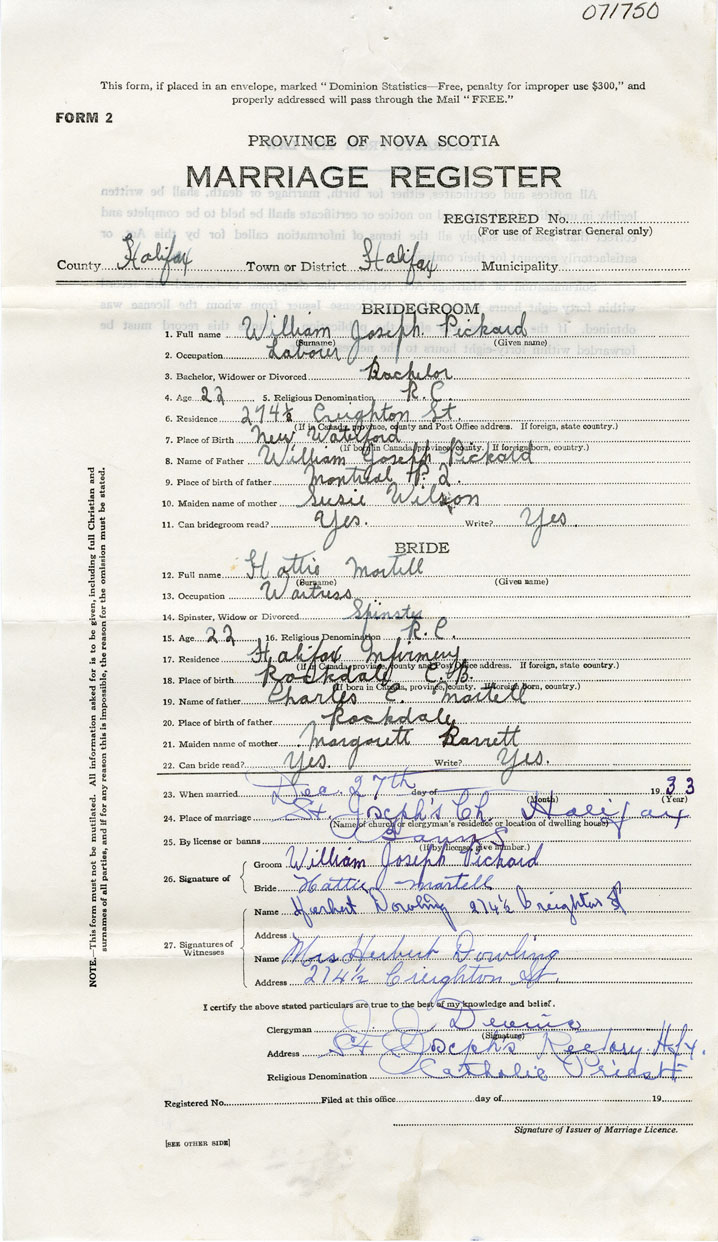 071750
This form, if placed in an envelope, marked " Dominion Statistics—Free, penalty for improper use $300," and
properly addressed will pass through the Mail " FREE."
FORM 2
PROVINCE OF NOVA SCOTIA
MARRIAGE REGISTER
REGISTERED No.
(For use of Registrar General only)
County Halifax Town or District Halifax Municipality
BRIDEGROOM
1. Full name William Joseph Pickard
(Surname) (Given name)
2. Occupation Labour
3. Bachelor, Widower or Divorced Bachelor
4. Age 22 5. Religious Denomination R. C.
6. Residence 274½ Creighton St.
(If in Canada, province, county and Post Office address. If foreign, state country.)
7. Place of Birth New Waterford
(If born in Canada, province, county. If foreign born, country.)
8. Name of Father William Joseph Pickard
9. Place of birth of father Montreal P. Q.
10. Maiden name of mother Susie Wilson
11. Can bridegroom read? Yes. Write? Yes.
BRIDE
12. Full name Hattie Martell
(Surname) (Given name)
13. Occupation Waitress
14. Spinster, Widow or Divorced Spinster
15. Age 22 16. Religious Denomination R. C.
17. Residence Halifax Infirmery
(If in Canada, province, county and Post Office address. If foreign, state country.)
18. Place of birth Rockdale C. B.
(If born in Canada, province, county. If foreign born, country.)
19. Name of father Charles C. Martell
20. Place of birth of father Rockdale
21. Maiden name of mother Margarett Barrett
22. Can bride read? Yes. Write? Yes.
23. When married Dec. 27th day of 1933
(Month) (Year)
24. Place of marriage St. Joseph's Ch. Halifax
(Name of church or clergyman's residence or location of dwelling house)
25. By license or banns Banns
(If by license, give number.)
26. Signature of
Groom William Joseph Pickard
Bride Hattie Martell
27. Signatures of Witnesses
Name Herbert Dowling 274½ Creighton St
Address
Name Mrs Herbert Dowling
Address 274½ Creighton St.
I certify the above stated particulars are true to the best of my knowledge and belief.
Clergyman
(Signature)
Address St Joseph's Rectory Hfx.
Religious Denomination Catholic Priest
Registered No. Filed at this office day of 19
Signature of Issuer of Marriage Licence.
[SEE OTHER SIDE]
NOTE.—This form must not be mutilated. All information asked for is to be given, including full Christian and
surnames of all parties, and if for any reason this is impossible, the reason for the omission must be stated.